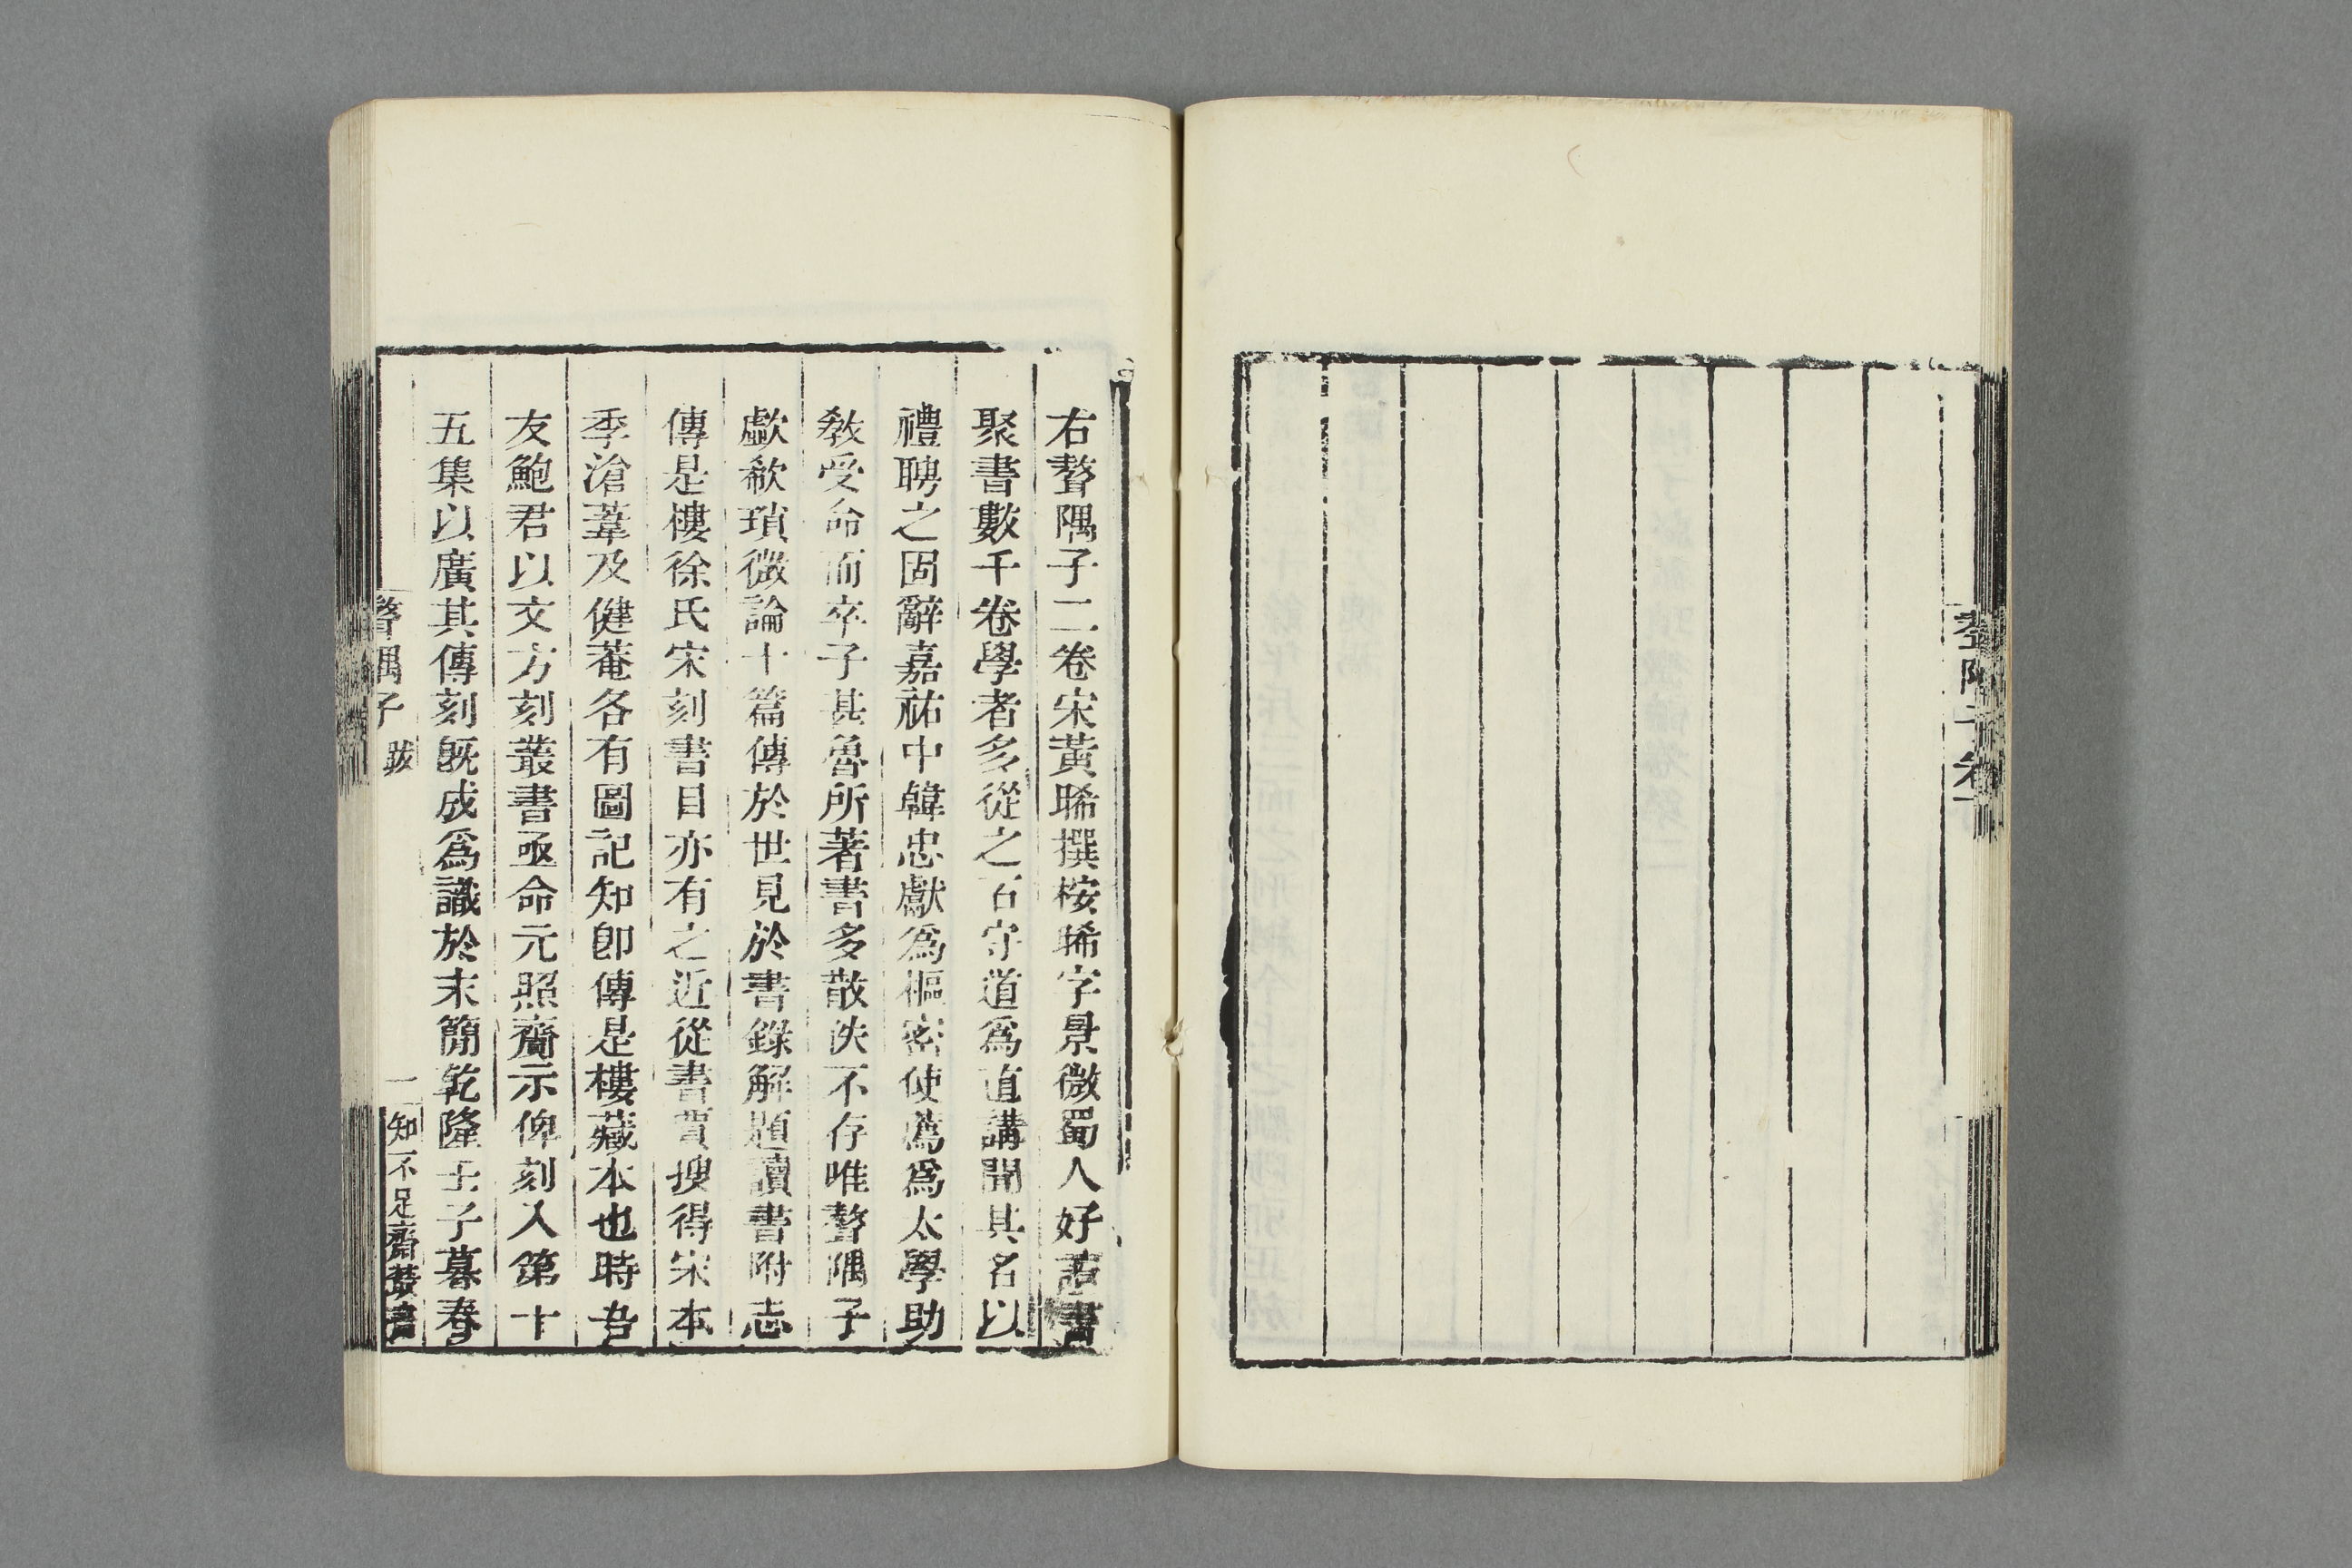 聱隅子卷下
右聱隅子二卷宋黃晞撰桉晞字景微蜀人好讀書
聚書數千卷學者多從之石守道爲直講聞其名以
禮聘之固辭嘉祐中韓忠獻爲樞密使薦爲太學助
敎受命而卒子甚魯所著書多散泆不存唯聱隅子
歔欷瑣微論十篇傳於世見於書錄解題讀書附志
傳是樓徐氏宋刻書目亦有之近從書賈搜得宋本
季滄葦及健菴各有圖記知卽傳是樓藏本也時吾
友鮑君以文方刻叢書亟命元照齎示俾刻入第十
五集以廣其傳刻旣成爲識於末簡乾隆壬子暮春
聱隅子 跋 一 知不足齋叢書